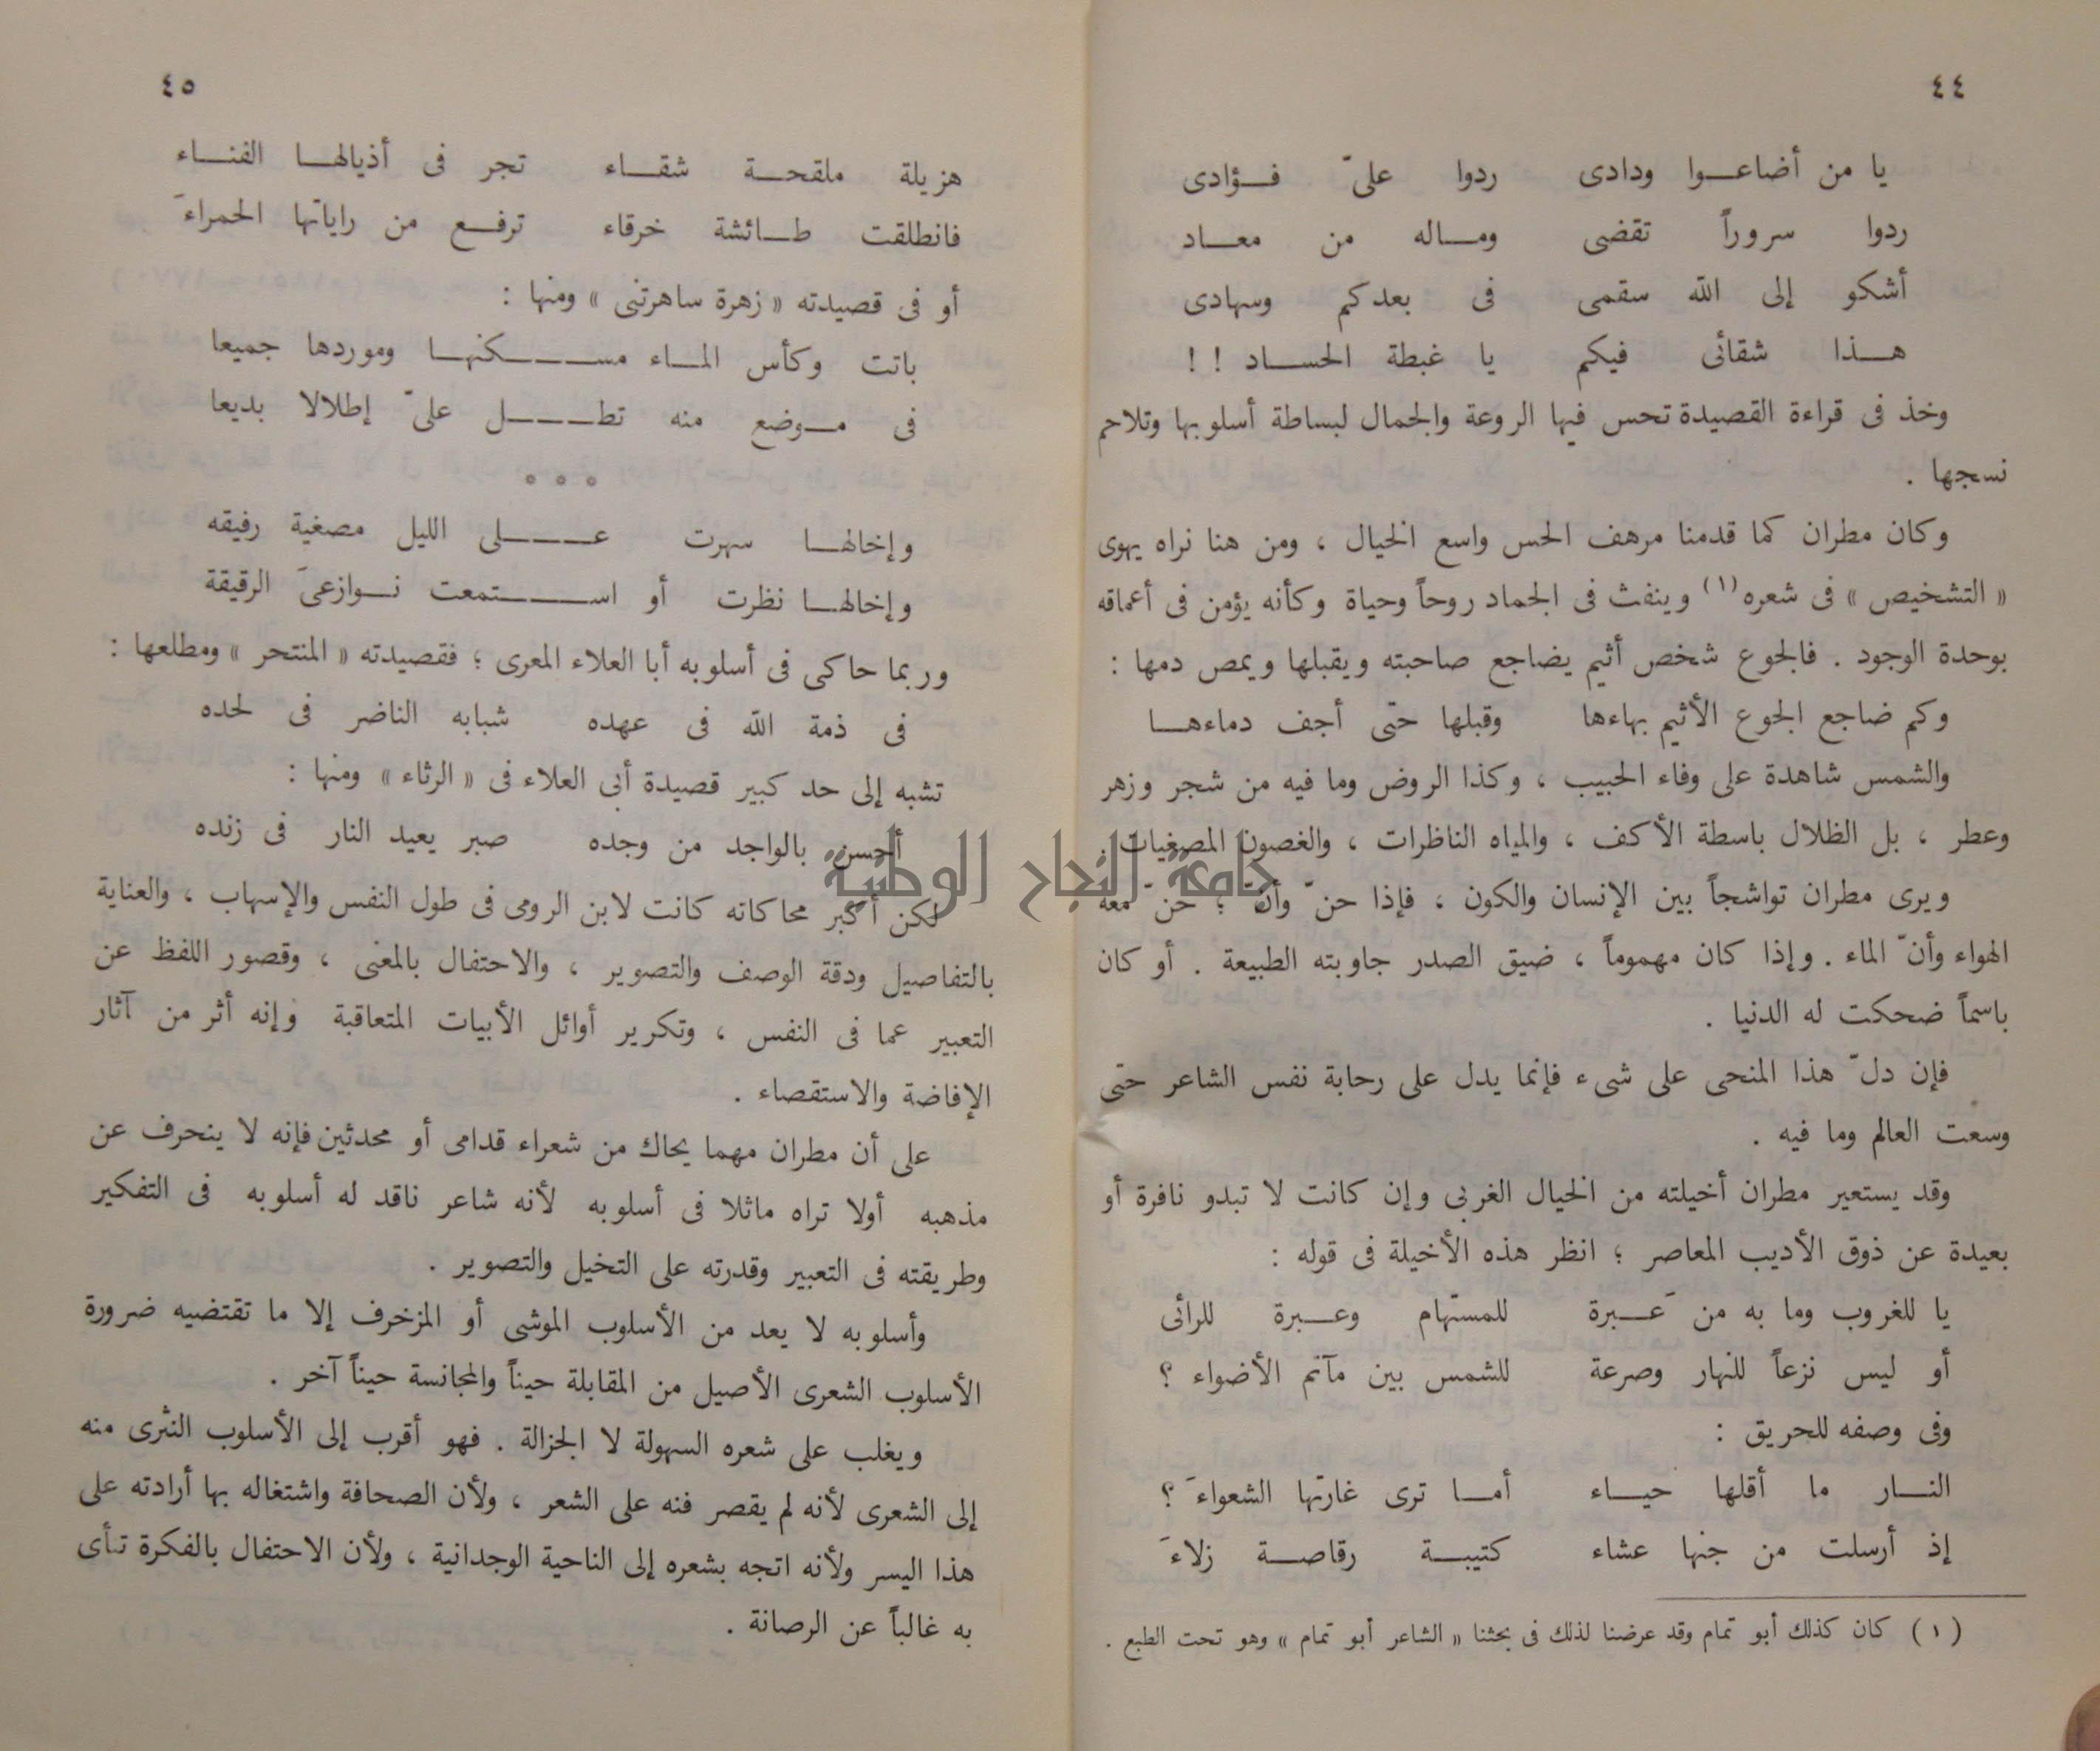 ٤٤
يا من أضاعـــوا ودادى ردوا علىّ فــؤادى
ردوا سروراً تقضى ومـــاله من معـــاد
أشكو إلى الله سقمى فى بعدكم وسهادى
هـــذا شقائى فيكم يا غبطة الحســـاد ! !
وخذ فى قراءة القصيدة تحس فيها الروعة والجمال لبساطة أسلوبها وتلاحم
نسجها .
وكان مطران كما قدمنا مرهف الحس واسع الخيال ، ومن هنا نراه يهوى
« التشخيص » فى شعره (١) وينفث فى الجماد روحاً وحياة وكأنه يؤمن فى أعماقه
بوحدة الوجود . فالجوع شخص أثيم يضاجع صاحبته ويقبلها ويمص دمها :
وكم ضاجع الجوع الأثيم بهاءها وقبلها حتى أجف دماءهـــا
والشمس شاهدة على وفاء الحبيب ، وكذا الروض وما فيه من شجر وزهر
وعطر ، بل الظلال باسطة الأكف ، والمياه الناظرات ، والغصون المصغيات .
ويرى مطران تواشجاً بين الإنسان والكون ، فإذا حنّ وأنّ ؛ حنّ معه
الهواء وأنّ الماء . وإذا كان مهموماً ، ضيق الصدر جاوبته الطبيعة . أو كان
باسماً ضحكت له الدنيا .
فإن دلّ هذا المنحى على شىء فإنما يدل على رحابة نفس الشاعر حتى
وسعت العالم وما فيه .
وقد يستعير مطران أخيلته من الخيال الغربى وإن كانت لا تبدو نافرة أو
بعيدة عن ذوق الأديب المعاصر ؛ انظر هذه الأخيلة فى قوله :
يا للغروب وما به من عَـــبرة للمستهام وعـــبرة للرائى
أو ليس نزعاً للنهار وصرعة للشمس بين مآتم الأضواء ؟
وفى وصفه للحريق :
النـــار ما أقلها حيـــاء أمـــا ترى غارتها الشعواءَ ؟
إذ أرسلت من جنها عشاء كتيبـــة رقاصـــة زلاءَ
(١) كان كذلك أبو تمام وقد عرضنا لذلك فى بحثنا « الشاعر أبو تمام » وهو تحت الطبع .
٤٥
هزيلة ملقحـــة شقـــاء تجر فى أذيالهـــا الفنـــاء
فانطلقت طـــائشة خرقاء ترفـــع من راياتها الحمراءَ
أو فى قصيدته « زهرة ساهرتنى » ومنها :
باتت وكأس المـــاء مســـكنهـــا وموردها جميعا
فى مـــوضع منه تطـــل علىّ إطلالا بديعا
° ° °
وإخالهـــا سهرت عـــلى الليل مصغية رفيقه
وإخالهـــا نظرت أو اســـتمعت نـــوازعىَ الرقيقة
وربما حاكى فى أسلوبه أبا العلاء المعرى ؛ فقصيدته « المنتحر » ومطلعها :
فى ذمة الله فى عهده شبابه الناضر فى لحده
تشبه إلى حد كبير قصيدة أبى العلاء فى « الرثاء » ومنها :
أحسن بالواجد من وجده صبر يعيد النار فى زنده
لكن أكبر محاكاته كانت لابن الرومى فى طول النفس والإسهاب ، والعناية
بالتفاصيل ودقة الوصف والتصوير ، والاحتفال بالمعنى ، وقصور اللفظ عن
التعبير عما فى النفس ، وتكرير أوائل الأبيات المتعاقبة وإنه أثر من آثار
الإفاضة والاستقصاء .
على أن مطران مهما يحاك من شعراء قدامى أو محدثين فإنه لا ينحرف عن
مذهبه أولا تراه ماثلا فى أسلوبه لأنه شاعر ناقد له أسلوبه فى التفكير
وطريقته فى التعبير وقدرته على التخيل والتصوير .
وأسلوبه لا يعد من الأسلوب الموشى أو المزخرف إلا ما تقتضيه ضرورة
الأسلوب الشعرى الأصيل من المقابلة حيناً والمجانسة حيناً آخر .
ويغلب على شعره السهولة لا الجزالة . فهو أقرب إلى الأسلوب النثرى منه
إلى الشعرى لأنه لم يقصر فنه على الشعر ، ولأن الصحافة واشتغاله بها أرادته على
هذا اليسر ولأنه اتجه بشعره إلى الناحية الوجدانية ، ولأن الاحتفال بالفكرة تنأى
به غالباً عن الرصانة .
جامعة النجاح الوطنية